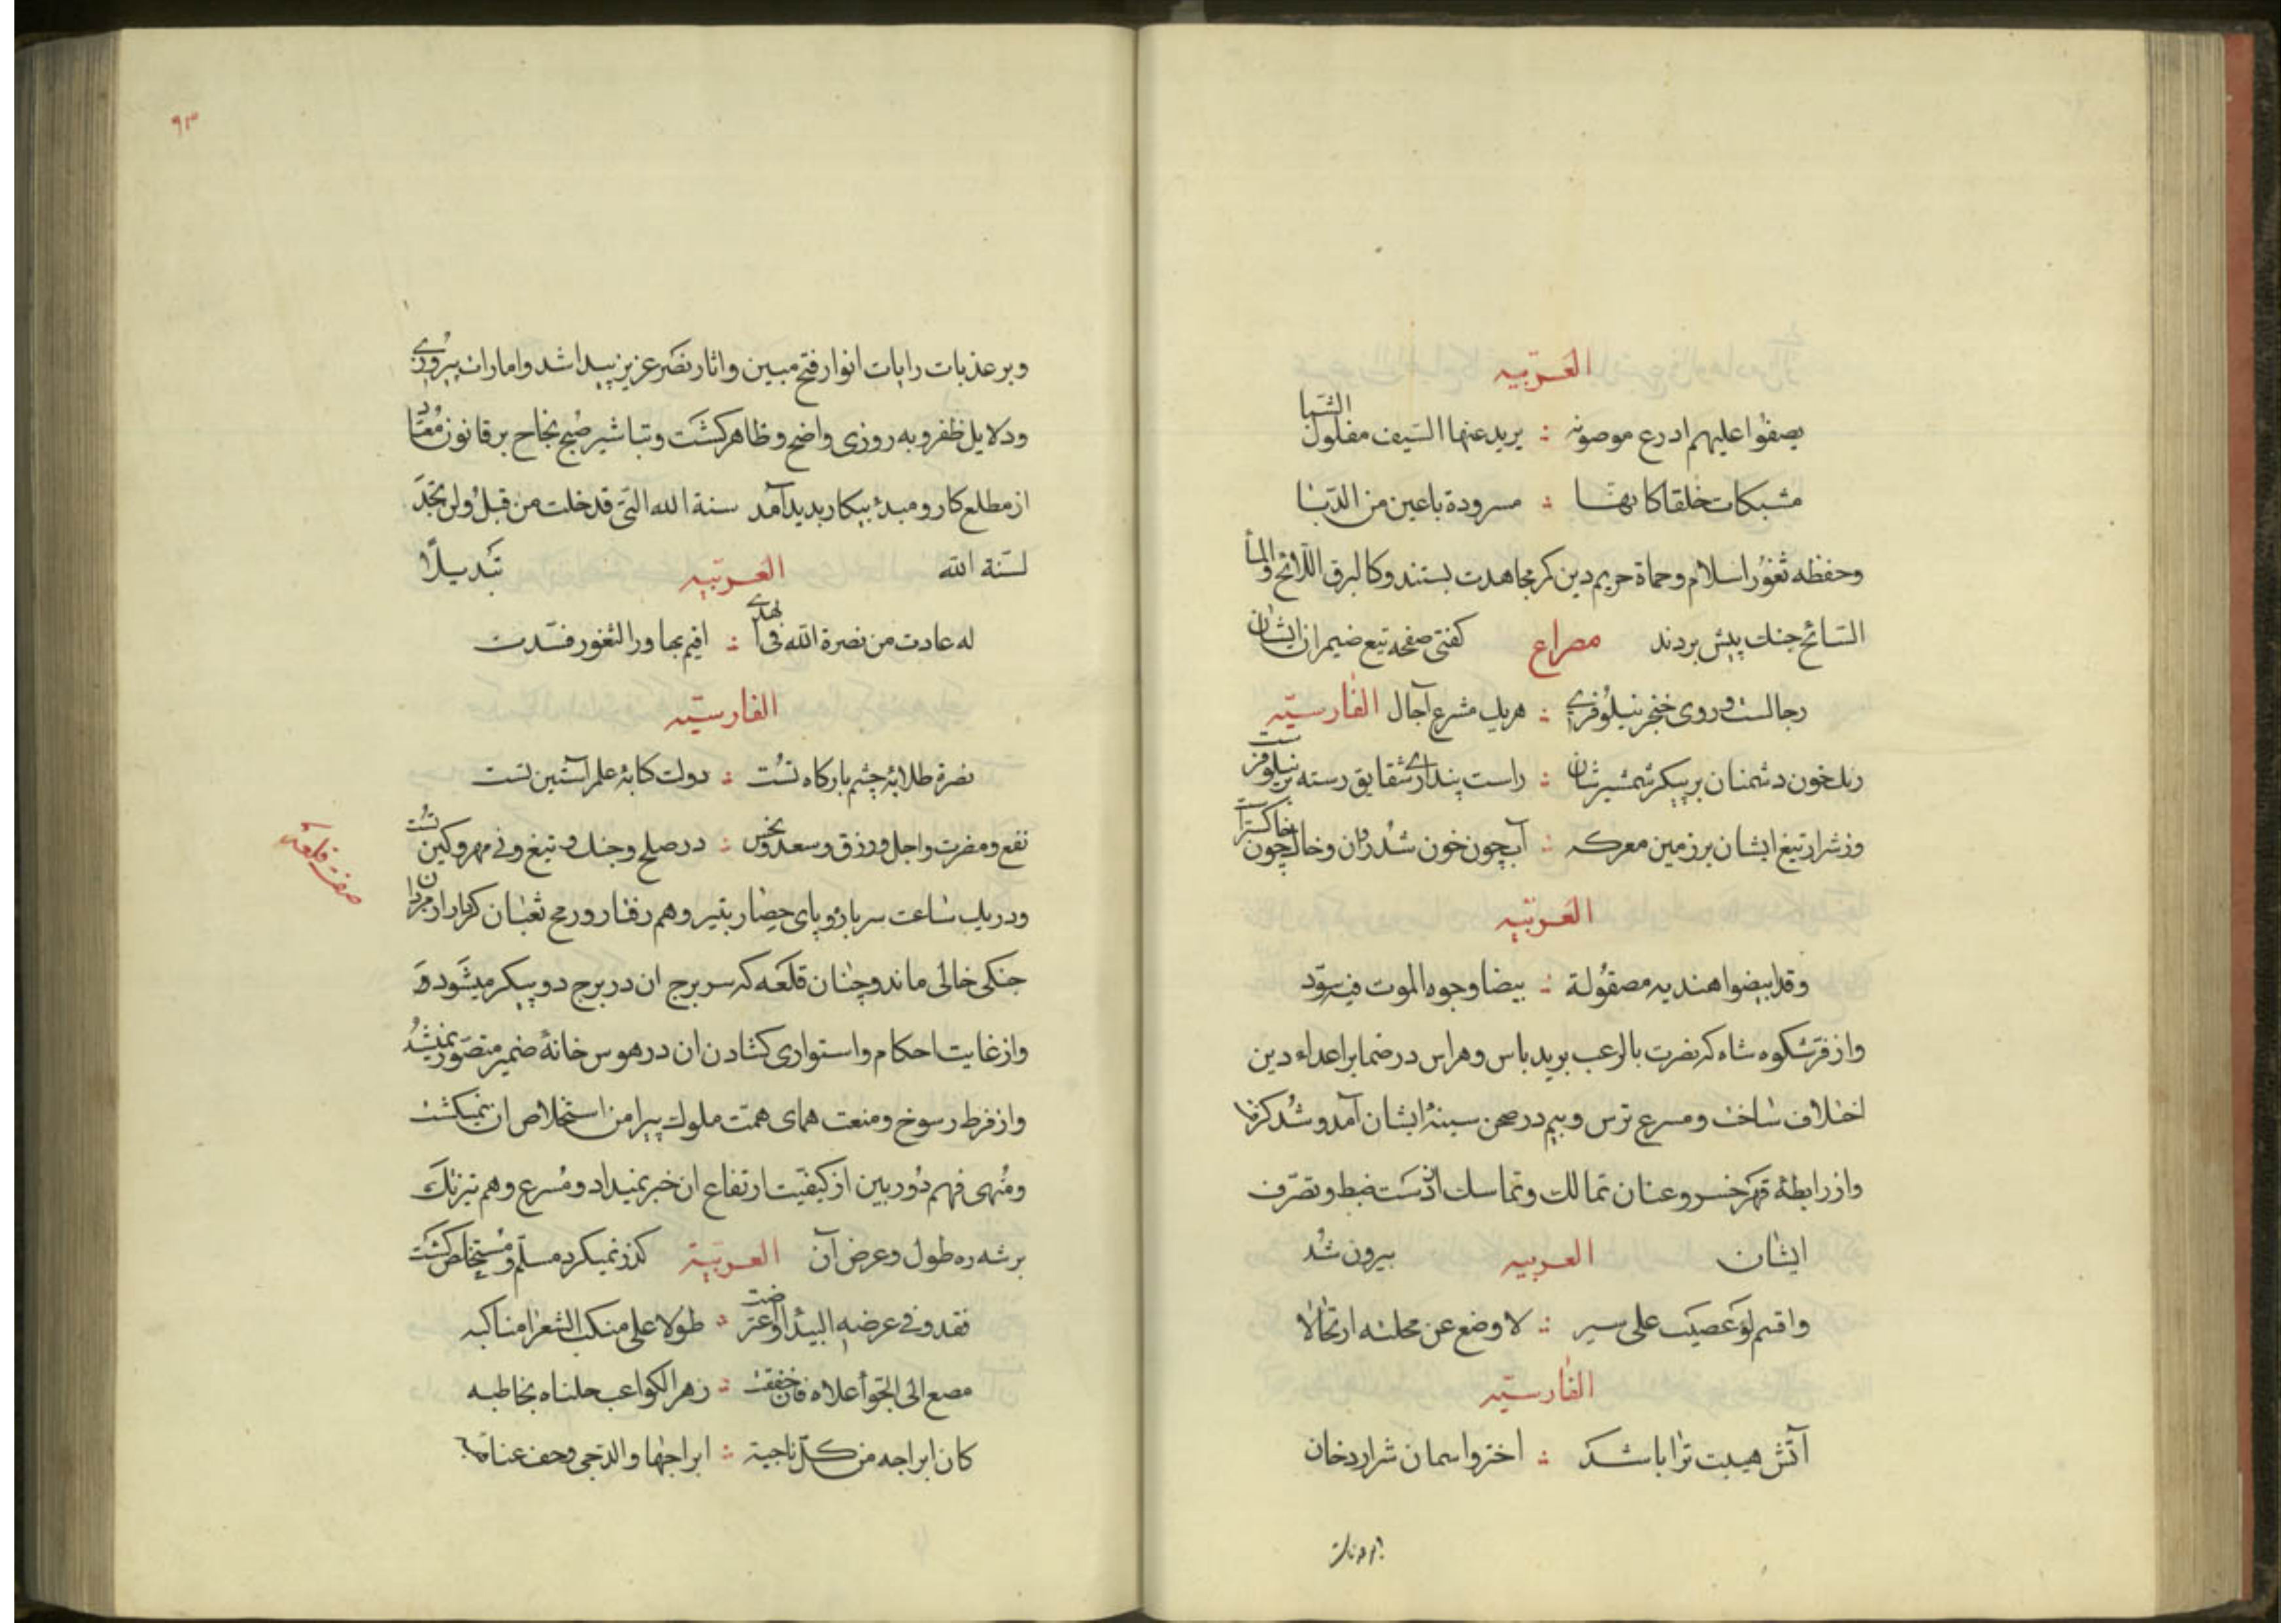 العربیه
یصفوا علیهم ادرع موصونه ؞ یرید عنها السیف مفلول الشبا
مشبکات خلقا کانهــا ؞ مسرودة باعین من الدبا
وحفظه ثغور اسلام وحماة حریم دین کمر مجاهدت بستند وکالبرق اللائح والماء
السائح جنک پیش بردند مصراع کفتی صفحه تیغ ضیمران ایشان
رجالست وروی خنجر نیلوفری ؞ هریک مشرع آجال الفارسیّه
رنک خون دشمنان بر پیکر شمشیرشان ؞ راست پنداری شقایق رسته بر نیلوفرست
وز شرار تیغ ایشان بر زمین معرکه ؞ آب چون خون شد روان وخاک چون خاکسترست
العربیّه
وقد ابیضوا هندیه مصقولة ؞ بیضا وجوه الموت فیه سوّد
واز فرّ شکوه شاه که نصرت بالرعب برید باس وهراس در ضمایر اعداء دین
اختلاف ساخت ومسرع ترس وبیم در صحن سینهٔ ایشان آمد وشد کرفت
واز رابطهٔ قهر خسرو عنان تمالک وتماسک از دست ضبط وتصرّف
ایشان العربیه بیرون شد
واقسم لو غضبت علی سیر ؞ لاوضع عن محلته ارتحالا
الفارسیّه
آتش هیبت ترا باشد ؞ اختر واسمان شرار دخان
بر عذبات
۹۳
وبر عذبات رایات انوار فتح مبین واثار نصر عزیز پیدا شد وامارات پیروزی
ودلایل ظفر وبه روزی واضح وظاهر کشت وتباشیر صبح نجاح بر قانون معتاد
از مطلع کار ومبدء پیکار بدید آمد سنة الله التی قد خلت من قبل ولن تجد
لسّنة الله العربیه تبدیلاً
له عادت من نصرة الله فی الهدی ؞ اقیم بها ورا الثغور فسّدت
الفارسیّه
نصرة طلایهٔ چشم بارکاه تست ؞ دولت کتابهٔ علم آستین تست
نفع ومضرت واجل ورزق وسعد ونحس ؞ در صلح وجنک وتیغ ونی مهر وکین تست
ودر یک ساعت سر باره وپای حصار بتیر وهم رفتار ورمح ثعبان کردار از مردان
صفت قلعه
جنکی خالی ماند وچنان قلعه که سر برج ان در برج دو پیکر میشود و
واز غایت احکام واستواری کشادن ان در هوس خانهٔ ضمیر متصور نمیشد
واز فرط رسوخ ومنعت همای همّت ملوک پیرامن استخلاص ان نمیکشت
ومنهی فهم دوربین از کیفیّت ارتفاع ان خبر نمیداد ومسرع وهم تیزتک
بر شه ره طول وعرض آن العربیّة کذر نمیکرد مسلّم ومستخلص کشت
فقد وفی عرضه البیدا واعترضت ؞ طولا علی منکب الشعرا مناکبه
مصغ الی الجوّ أعلاه فان خفقت ؞ زهر الکواکب خلناه یخاطبه
کان ابراجه من کل ناجیة ؞ ابراجها والدجی وحف